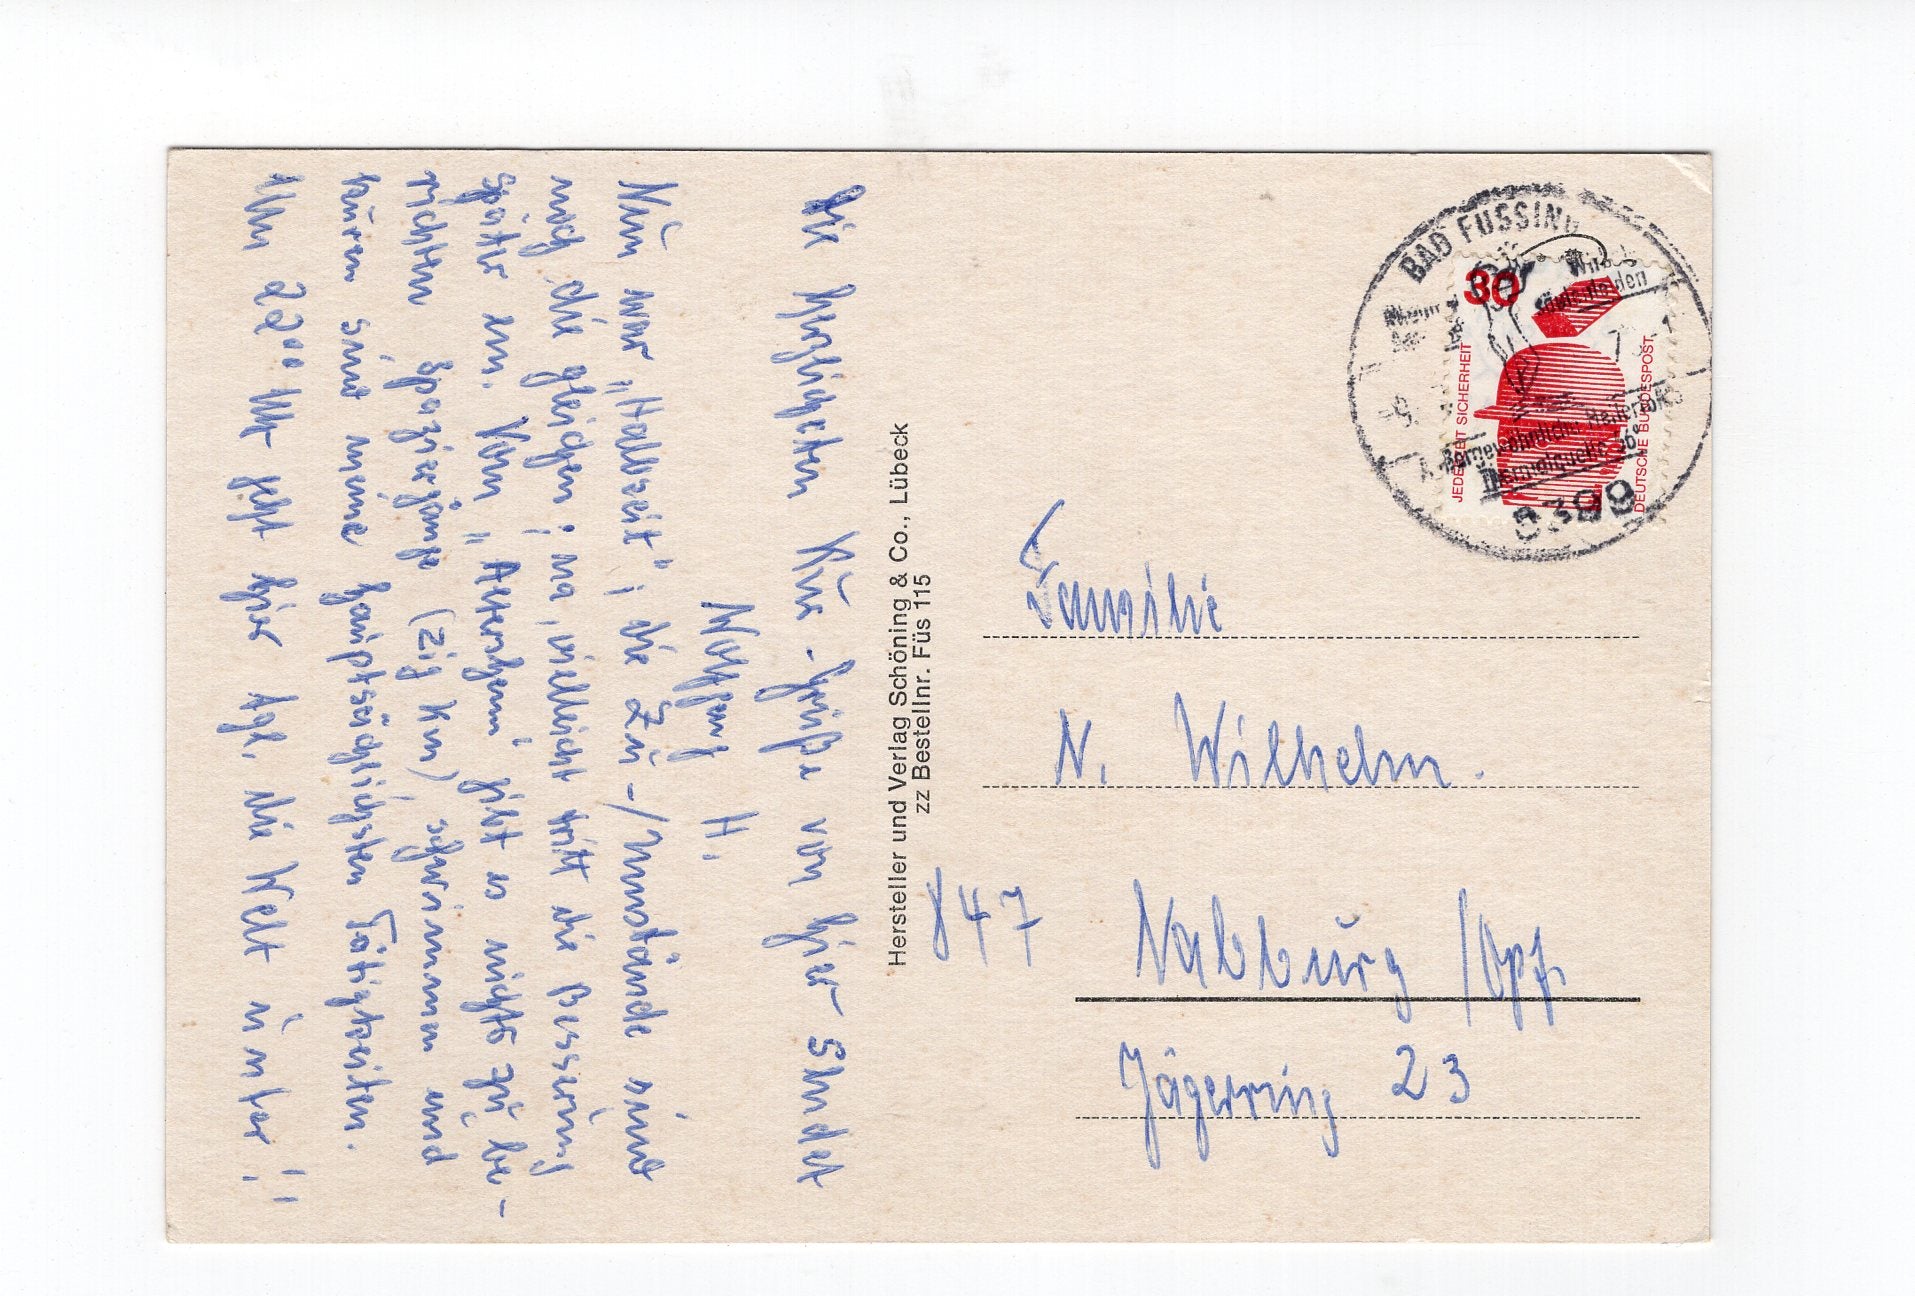 Die herzlichsten Kur-Grüße von hier sendet
H.
Nun war "Halbzeit"; die Zu-/Umstände sind
noch die gleichen; na, vielleicht tritt die Besserung
später ein. Vom gibt es nichts zu be-
richten. Spaziergänge (zig km), schwimmen und
kuren sind meine hauptsächlichsten Tätigkeiten.
Um 22⁰⁰ Uhr geht hier tgl. die Welt unter!!
Hersteller und Verlag Schöning & Co., Lübeck
zz Bestellnr. Füs 115
BAD FÜSSING
8399
30
JEDERZEIT SICHERHEIT
DEUTSCHE BUNDESPOST
Familie
N. Wilhelm.
847 Nabburg/Opf.
Jägerring 23